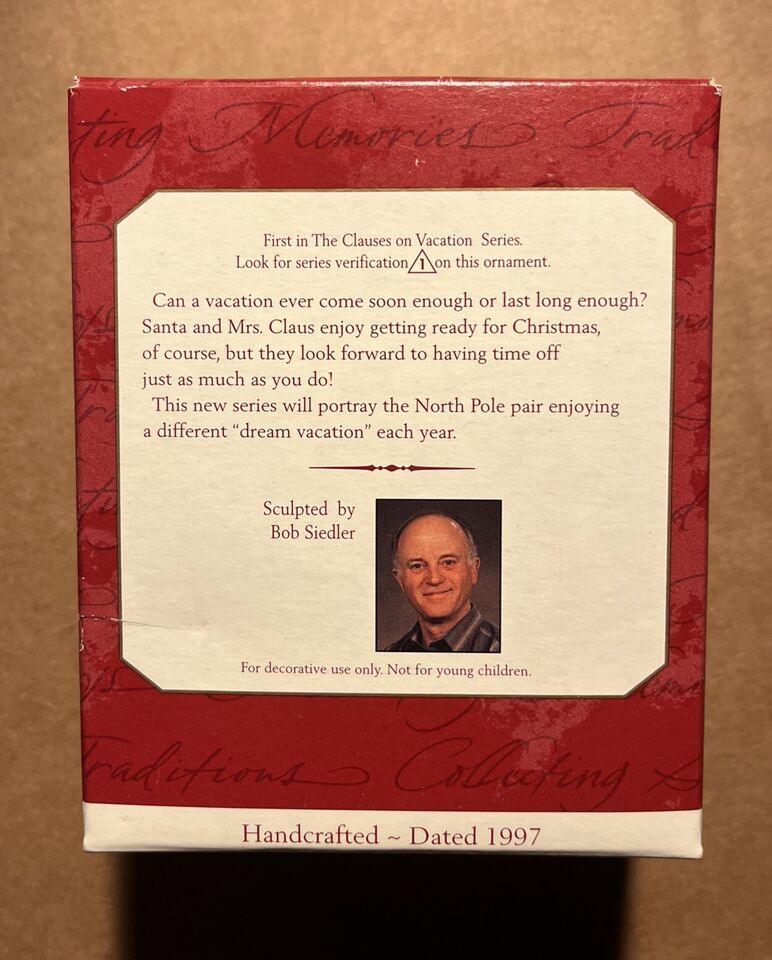 ting Memories Trad
First in The Clauses on Vacation Series.
Look for series verification 1 on this ornament.
Can a vacation ever come soon enough or last long enough?
Santa and Mrs. Claus enjoy getting ready for Christmas,
of course, but they look forward to having time off
just as much as you do!
This new series will portray the North Pole pair enjoying
a different “dream vacation” each year.
Sculpted by
Bob Siedler
For decorative use only. Not for young children.
raditions Collecting
Handcrafted ~ Dated 1997